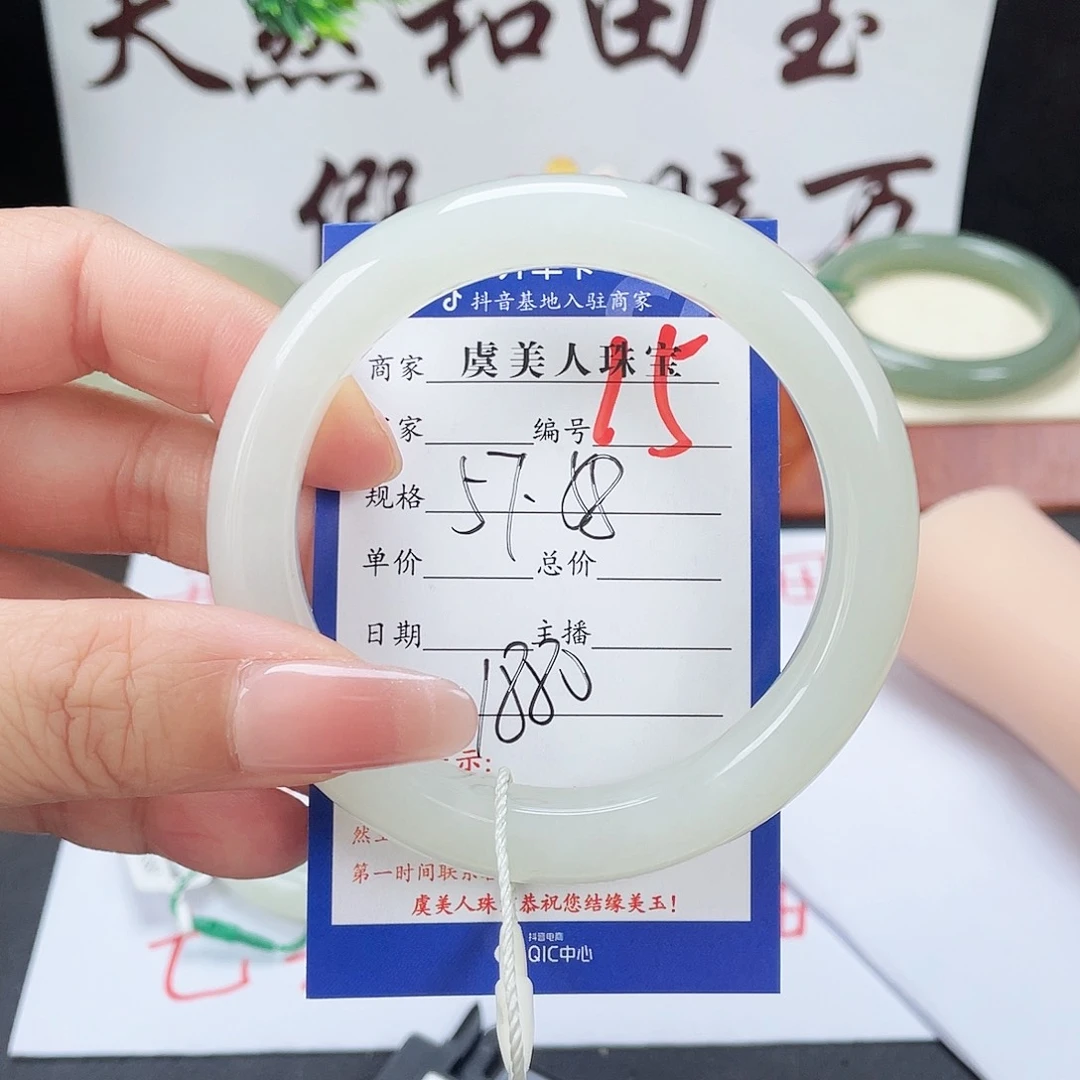 天然和田玉
假 万
抖音基地入驻商家
商家 虞美人珠宝
家 编号 15
规格 57.
单价 总价
日期 主播
1880
示:
然
第一时间联系
虞美人珠 恭祝您结缘美玉!
抖音电商
QIC中心